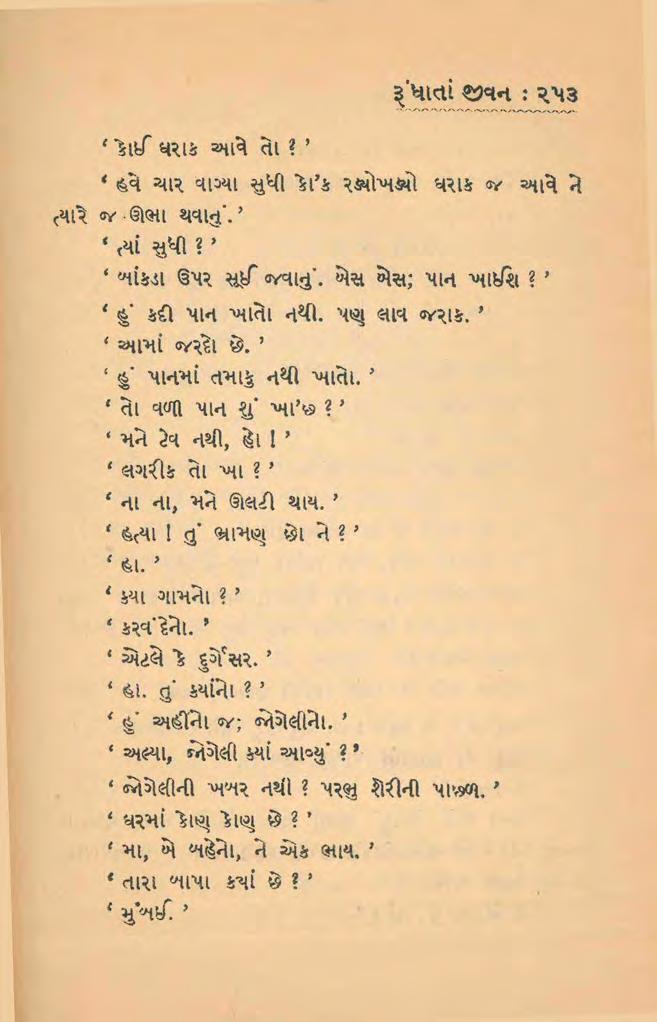 રૂંધાતાં જીવન : ૨૫૩
‘ કોઈ ઘરાક આવે તો ? ’
‘ હવે ચાર વાગ્યા સુધી કો’ક રડ્યોખડ્યો ઘરાક જ આવે ને
ત્યારે જ ઊભા થવાનું. ’
‘ ત્યાં સુધી ? ’
‘ બાંકડા ઉપર સૂઈ જવાનું. બેસ બેસ; પાન ખાઈશ ? ’
‘ હું કદી પાન ખાતો નથી. પણ લાવ જરાક. ’
‘ આમાં જરદો છે. ’
‘ હું પાનમાં તમાકુ નથી ખાતો. ’
‘ તો વળી પાન શું ખા’છ ? ’
‘ મને ટેવ નથી, હો ! ’
‘ લગરીક તો ખા ? ’
‘ ના ના, મને ઊલટી થાય. ’
‘ હત્યા ! તું ભ્રામણ છો ને ? ’
‘ હા. ’
‘ કયા ગામનો ? ’
‘ કરવંદેનો. ’
‘ એટલે કે દુર્ગેસર. ’
‘ હા. તું કયાંનો ? ’
‘ હું અહીંનો જ; જોગેલીનો. ’
‘ અલ્યા, જોગેલી કયાં આવ્યું ? ’
‘ જોગેલીની ખબર નથી ? પરભુ શેરીની પાછળ. ’
‘ ઘરમાં કોણ કોણ છે ? ’
‘ મા, બે બહેનો, ને એક ભાય. ’
‘ તારા બાપા કયાં છે ? ’
‘ મુંબઈ. ’